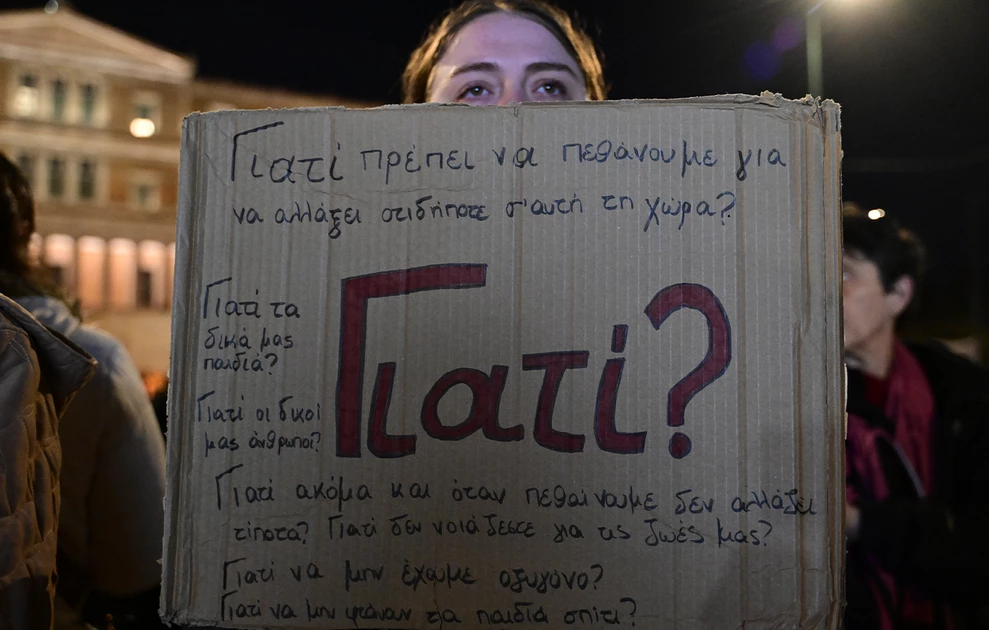 Γιατί πρέπει να πεθάνουμε για
να αλλάξει οτιδήποτε σ'αυτή τη χώρα?
Γιατί?
Γιατί τα
δικά μας
παιδιά?
Γιατί οι δικοί
μας άνθρωποι?
Γιατί ακόμα και όταν πεθαίνουμε δεν αλλάζει
τίποτα? Γιατί δεν νοιάζεστε για τις ζωές μας?
Γιατί να μην έχουμε οξυγόνο?
Γιατί να μην φτάναν τα παιδιά σπίτι?